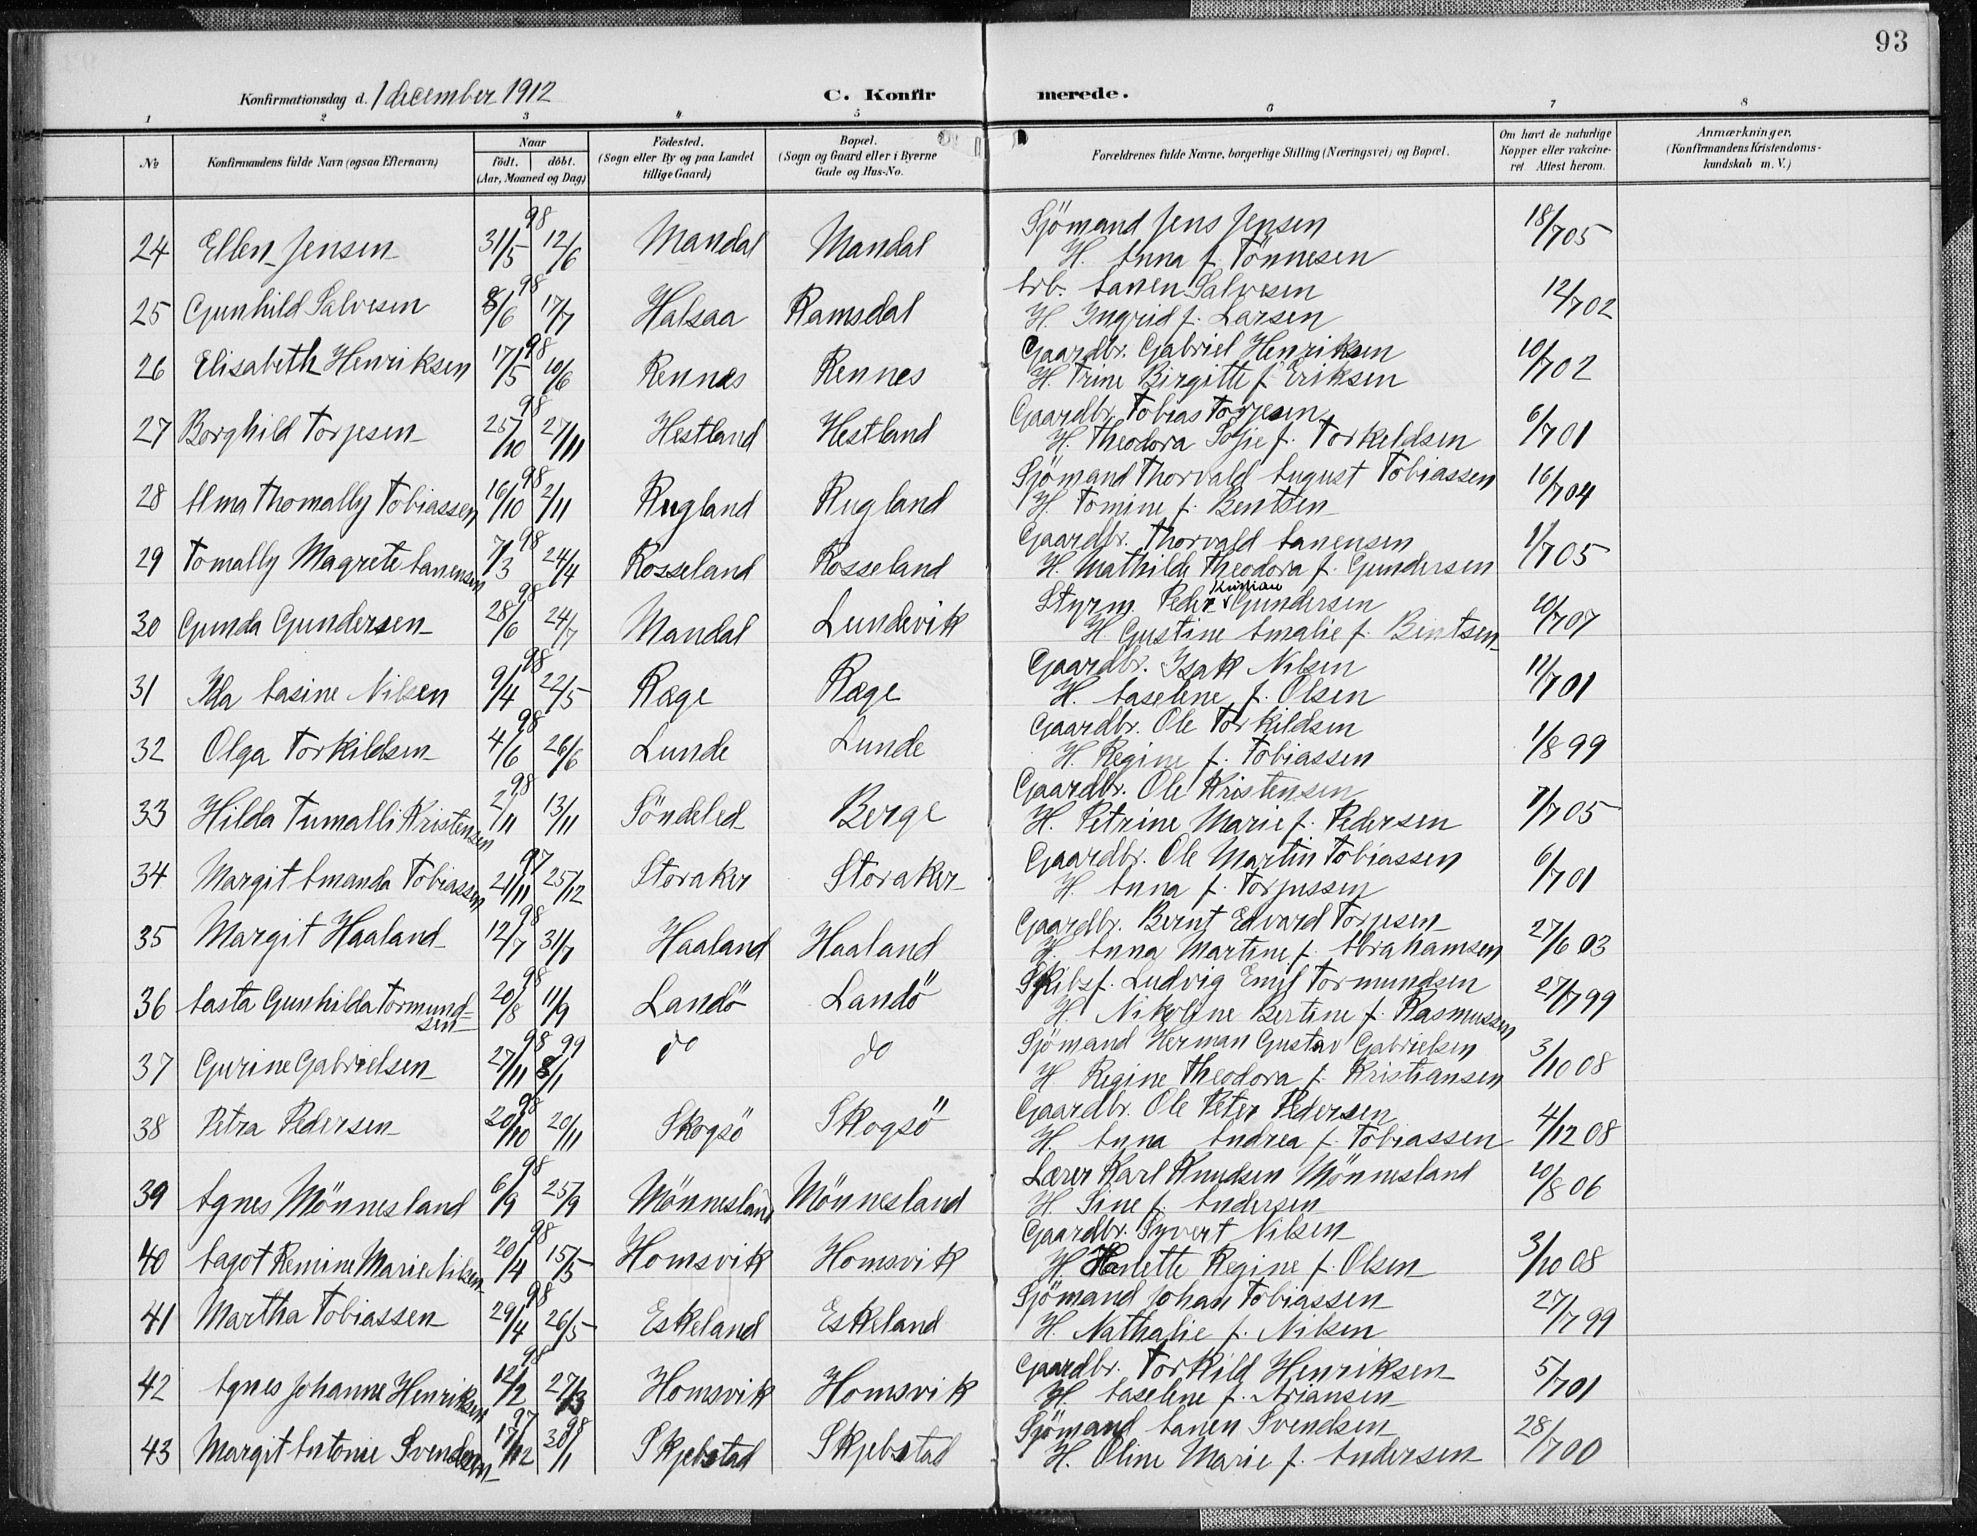 93
Konfirmationsdag d. 1 december 1912
C. Konfirmerede.
1 2 3 4 5 6 7 8
No
Konfirmandens fulde Navn (ogsaa Efternavn)
Naar
født. døbt.
(Aar, Maaned og Dag)
Fødested.
(Sogn eller By og paa Landet
tillige Gaard)
Bopæl.
(Sogn og Gaard eller i Byerne
Gade og Hus-No.
Forældrenes fulde Navne, borgerlige Stilling (Næringsvei) og Bopæl.
Om havt de naturlige
Kopper eller vakcine-
ret Attest herom.
Anmærkninger.
(Konfirmandens Kristendoms-
kundskab m. V.)
24 Ellen Jensen 31/5 98 12/6 Mandal Mandal Sjömand Jens Jensen 18/7 05
H. Anna f. Tönnesen
25 Gunhild Salvesen 8/6 98 17/7 Halsaa Ramsdal Arb. Aanen Salvesen 12/7 02
H. Ingrid f. Larsen
26 Elisabeth Henriksen 17/5 98 10/6 Rennes Rennes Gaardbr. Gabriel Henriksen 10/7 02
H. Trine Birgitte f. Eriksen
27 Borghild Torjesen 25/10 98 27/11 Hestland Hestland Gaardbr. Tobias Torjesen 6/7 01
H. Theodora Sofie f. Torkildsen
28 Alma Thomally Tobiassen 16/10 98 2/11 Rugland Rugland Sjömand Thorvald August Tobiassen 16/7 04
H. Tomine f. Bentsen
29 Tomally Magrete Aanensen 7/3 98 24/4 Rosseland Rosseland Gaardbr. Thorvald Aanensen 1/7 05
H. Mathilde Theodora f. Gundersen
30 Gunda Gundersen 28/6 98 24/7 Mandal Lundevik Styrm. Peder Kristian Gundersen 10/7 07
H. Gustine Amalie f. Bentsen
31 Ida Aasine Nilsen 9/4 98 22/5 Ræge Ræge Gaardbr. Isak Nilsen 11/7 01
H. Aaselene f. Olsen
32 Olga Torkildsen 4/6 98 26/6 Lunde Lunde Gaardbr. Ole Torkildsen 1/8 99
H. Regine f. Tobiassen
33 Hilda Tumalli Kristensen 2/11 98 13/11 Söndeled Berge Gaardbr. Ole Kristensen 7/7 05
H. Petrine Marie f. Pedersen
34 Margit Amanda Tobiassen 21/11 97 25/12 Storaker Storaker Gaardbr. Ole Martin Tobiassen 6/7 01
H. Anna f. Torjussen
35 Margit Haaland 12/7 98 31/7 Haaland Haaland Gaardbr. Bernt Edvard Torjesen 27/6 03
H. Anna Martine f. Abrahamsen
36 Aasta Gunhilda Tormund=
sen 20/8 98 11/9 Landö Landö Skibsf. Ludvig Emil Tormundsen 27/7 99
H. Nikoline Bertine f. Rasmussen
37 Gurine Gabrielsen 27/11 98 8/1 99 do do Sjömand Herman Gustav Gabrielsen 3/10 08
H Regine Theodora f. Kristiansen
38 Petra Pedersen 20/10 98 20/11 Skogsö Skogsö Gaardbr. Ole Peter Pedersen 4/12 08
H. Anna Andrea f. Tobiassen
39 Agnes Mönnesland 6/9 98 25/9 Mönnesland Mönnesland Lærer Karl Knudsen Mönnesland 10/8 06
H. Sine f. Andersen
40 Aagot Remine Marie Nilsen 20/4 98 15/5 Homsvik Homsvik Gaardbr. Syvert Nilsen 3/10 08
H. Regine f. Olsen
41 Martha Tobiassen 29/4 98 26/5 Eskeland Eskeland Sjömand Johan Tobiassen 27/7 99
H. Nathalie f. Nilsen
42 Agnes Johanne Henriksen 12/2 98 27/3 Homsvik Homsvik Gaardbr. Torkild Henriksen 5/7 01
H. Aaselene f. Ariansen
43 Margit Antonie Svendsen 17/12 97 30/1 98 Skjebstad Skjebstad Sjömand Aanen Svendsen 28/7 00
H. Oline Marie f. Andersen